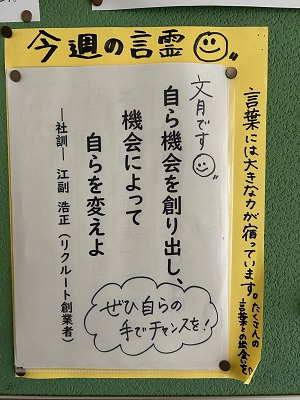 今週の言霊
文月です
自ら機会を創り出し、
機会によって
自らを変えよ
―社訓― 江副 浩正（リクルート創業者）
ぜひ自らの
手でチャンスを！
言葉には大きな力が宿っています。たくさんの
言葉との出会いを